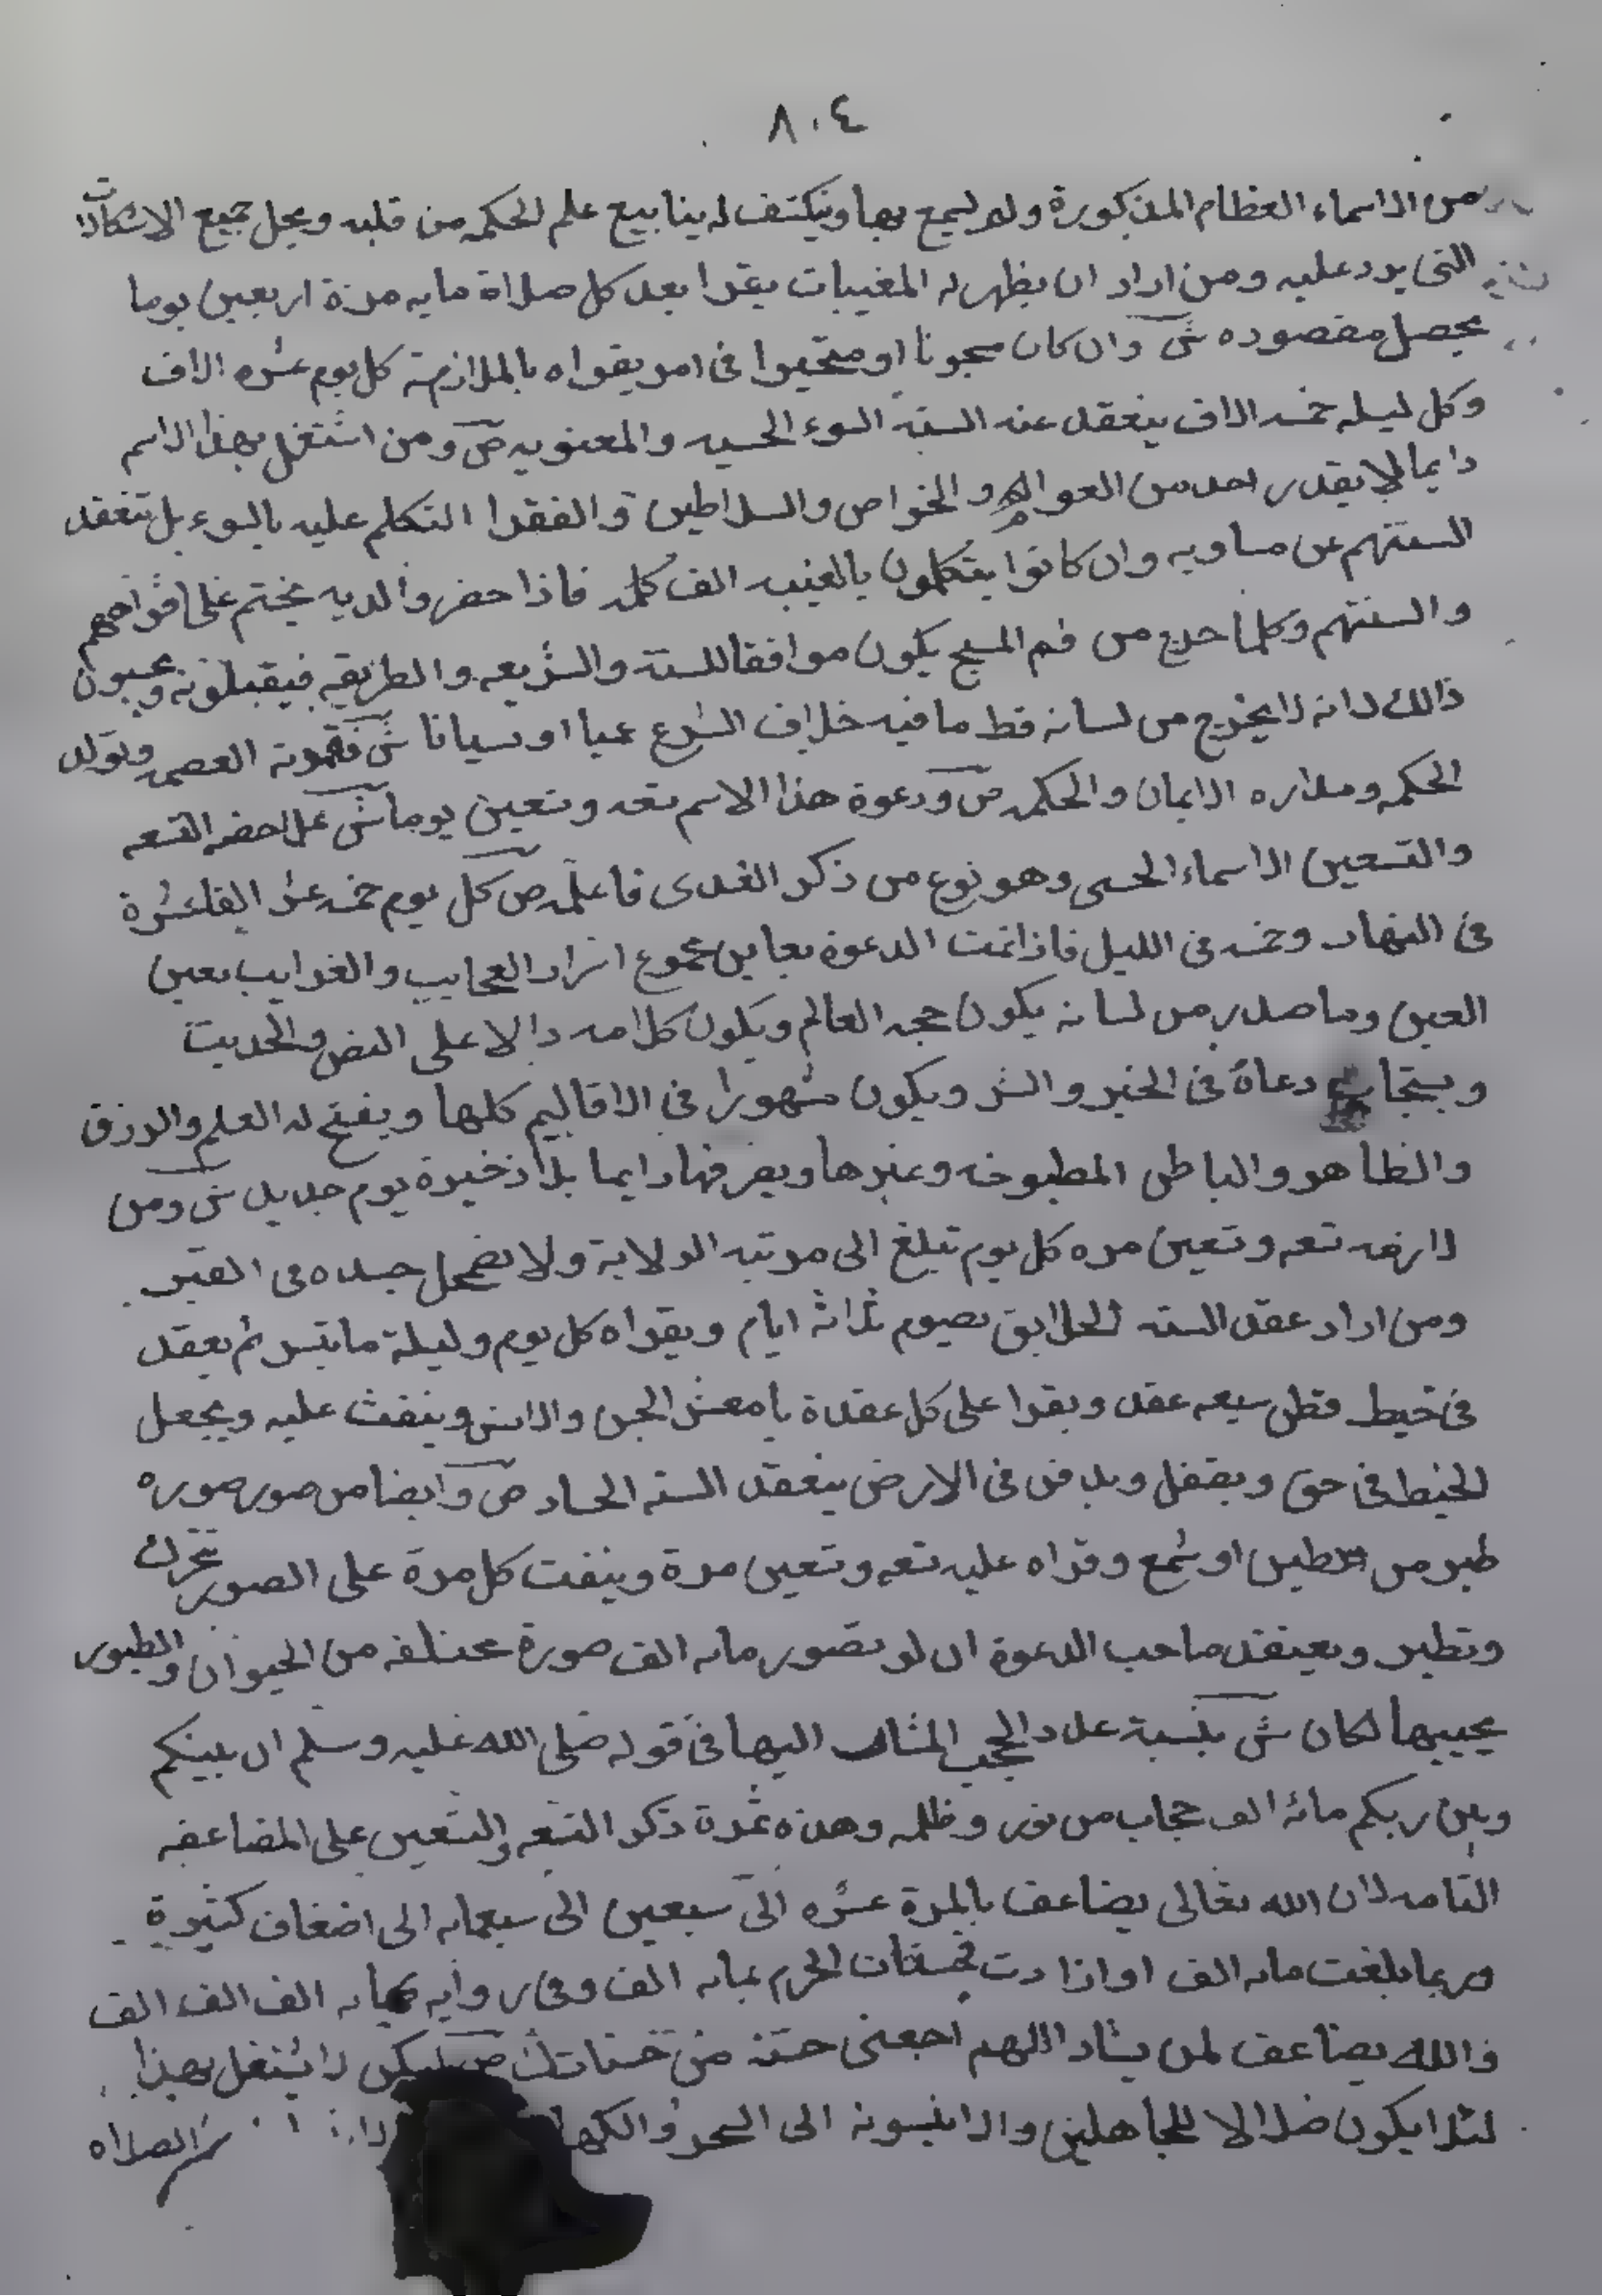 ٨٠٤
من الاسماء العظام المذكورة ولم يسمع بها ويكتف له ينابيع علم الحكمه من قلبه ويحل جميع الاشكالات
التى يرد عليه ومن اراد ان يظهر له المغيبات يقرا بعد كل صلاة مايه مرة اربعين يوما
يحصل مقصوده ش وان كان مسجونا او متحيرا فى امر يقراه بالملازمة كل يوم عشره الاف
وكل ليله خمسه الاف ينعقد عنه السنة السوء الحسيه والمعنويه ص ومن اشتغل بهذا الاسم
دايما لا يقدر احد من العوام والخواص والسلاطين و الفقرا التكلم عليه بالسوء بل تنعقد
السنتهم عن مساويه وان كانوا يتكلمون بالغيبه الف كلمه فاذا حضروا لديه يختم على افواههم
والسنتهم وكلما خرج من فم المسبح يكون موافقا للسنة والشريعه والطريقه فيقبلونه ويحبون
ذالك لانه لا يخرج من لسانه قط ما فيه خلاف الشرع عيا او نسيانا ش العصمه وتولد
الحكمه ومداره الايمان والحكمه ص ودعوة هذا الاسم تسعه وتسعين يوما ش على التسعه
والتسعين الاسماء الحسنى وهو نوع من ذكر الفدى فاعلمه ص كل يوم خمسه عشر الفا عشرة
فى النهار وخمسه فى الليل فاذا تمت الدعوة يعاين مجموع اسرار العجايب والغرايب بعين
العين وما صدر من لسانه يكون حجه العالم ويكون كلامه دالا على النص والحديث
ويستجاب دعاه فى الخير والشر ويكون مشهورا فى الاقاليم كلها ويفتح له العلم والرزق
والظاهر والباطن المطبوخه وغيرها ويصرفها دايما بلا ذخيرة يوم جديد ش ومن
لازمه تسعه وتسعين مره كل يوم تبلغ الى مرتبه الولاية ولا يضمحل جسده فى القبر
ومن اراد عقد السنه الخلايق يصوم ثلاثة ايام ويقراه كل يوم وليلة ما تيسر ثم يعقد
فى خيط قطن سبعه عقد ويقرا على كل عقدة يا معشر الجن والانس وينفث عليه ويجعل
الخيط فى حق ويقفل ويدفن فى الارض ينعقد السنه الحساد ص وايضا من صور صوره
طير من طين او شمع وقراه عليه تسعه وتسعين مرة وينفث كل مرة على الصور تتحرك
وتطير ويعتقد صاحب الدعوة ان لو تصور مايه الف صورة مختلفه من الحيوان والطيور
يحييها لكان ش بنسبة عدد الحجب المشار اليها فى قوله صلى الله عليه وسلم ان بينكم
وبين ربكم مائة الف حجاب من نور وظلمه وهذه ثمرة ذكر التسعه والتسعين على المضاعفه
التامه لان الله تعالى يضاعف بالمرة عشره الى سبعين الى سبعمايه الى اضعاف كثيرة
وربما بلغت مايه الف او اذا دت حسنات الحرم بمايه الف وفى روايه بمايه الف الف الف
والله يضاعف لمن يشاء اللهم اجعلنى حسنة من حسناتك ص ليكن لا يشتغل بهذا
لئلا يكون ضلالا للجاهلين والا ينسبونه الى السحر والصلاه